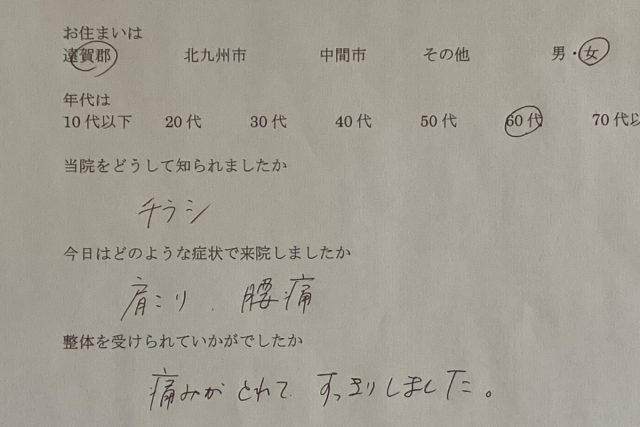 お住まいは
遠賀郡 北九州市 中間市 その他 男・女
年代は
10代以下 20代 30代 40代 50代 60代 70代以
当院をどうして知られましたか
チラシ
今日はどのような症状で来院しましたか
肩こり、腰痛
整体を受けられていかがでしたか
痛みがとれて すっきりしました。